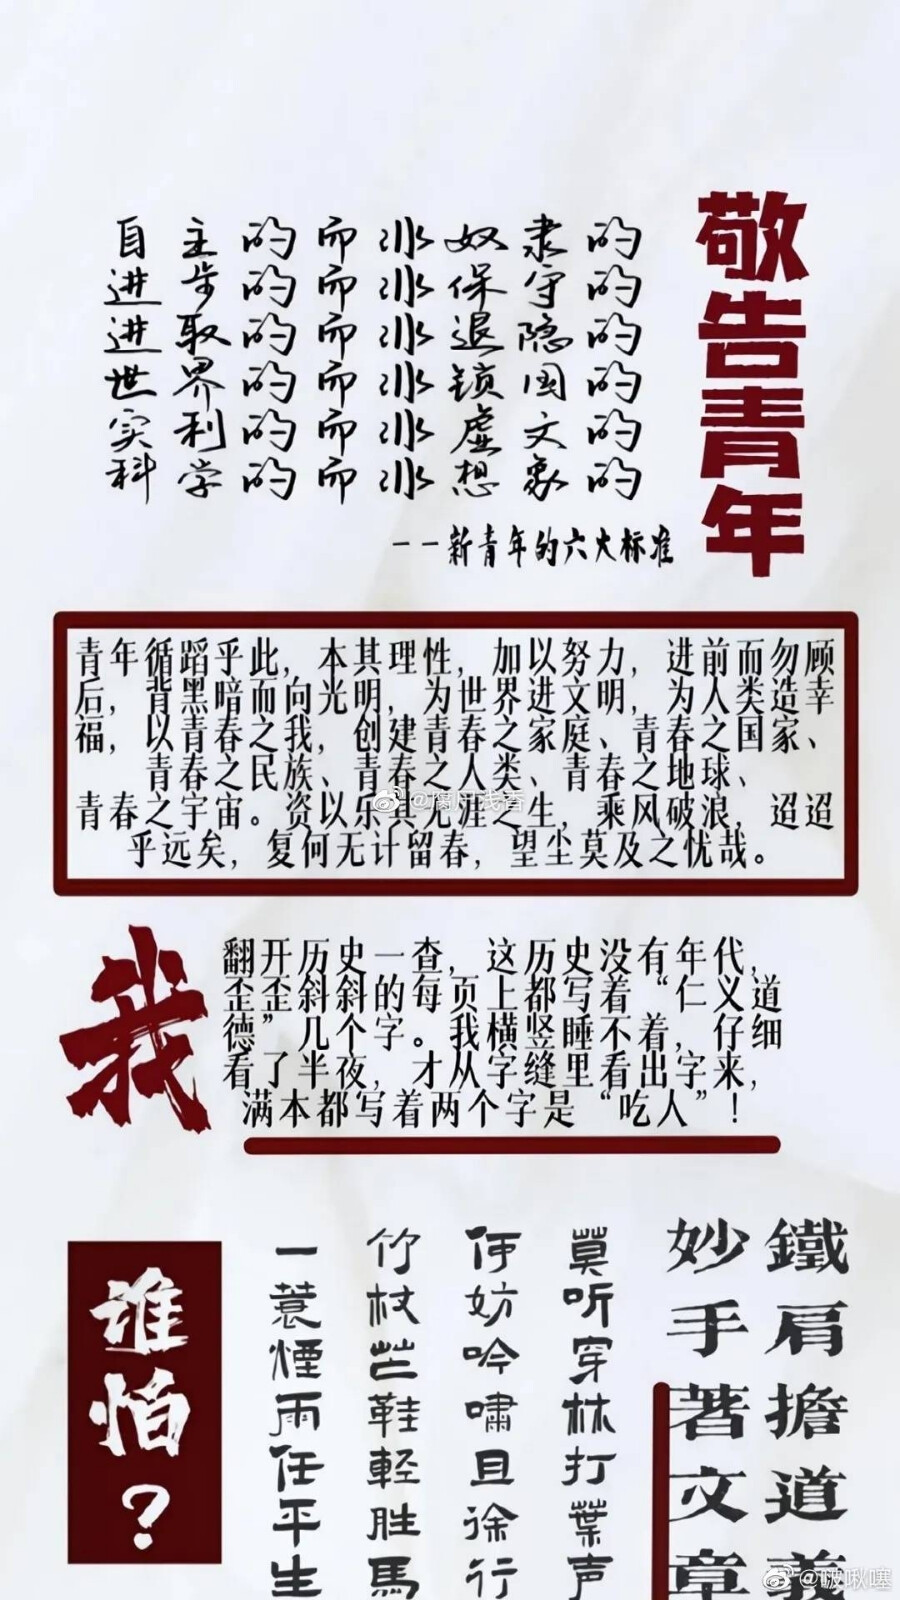 敬告青年
自主的而非奴隶的
进步的而非保守的
进取的而非退隐的
世界的而非锁国的
实利的而非虚文的
科学的而非想象的
--新青年的六大标准
青年循蹈乎此，本其理性，加以努力，进前而勿顾
后，背黑暗而向光明，为世界进文明，为人类造幸
福，以青春之我，创建青春之家庭、青春之国家、
青春之民族、青春之人类、青春之地球、
青春之宇宙。资以乐其无涯之生，乘风破浪，迢迢
乎远矣，复何无计留春，望尘莫及之忧哉。
我
翻开历史一查，这历史没有年代，
歪歪斜斜的每页上都写着“仁义道
德”几个字。我横竖睡不着，仔细
看了半夜，才从字缝里看出字来，
满本都写着两个字是“吃人”！
鐵肩擔道義
妙手著文章
莫听穿林打葉声
何妨吟嘯且徐行
竹杖芒鞋輕胜馬
一蓑煙雨任平生
谁怕？
@啵啾噻